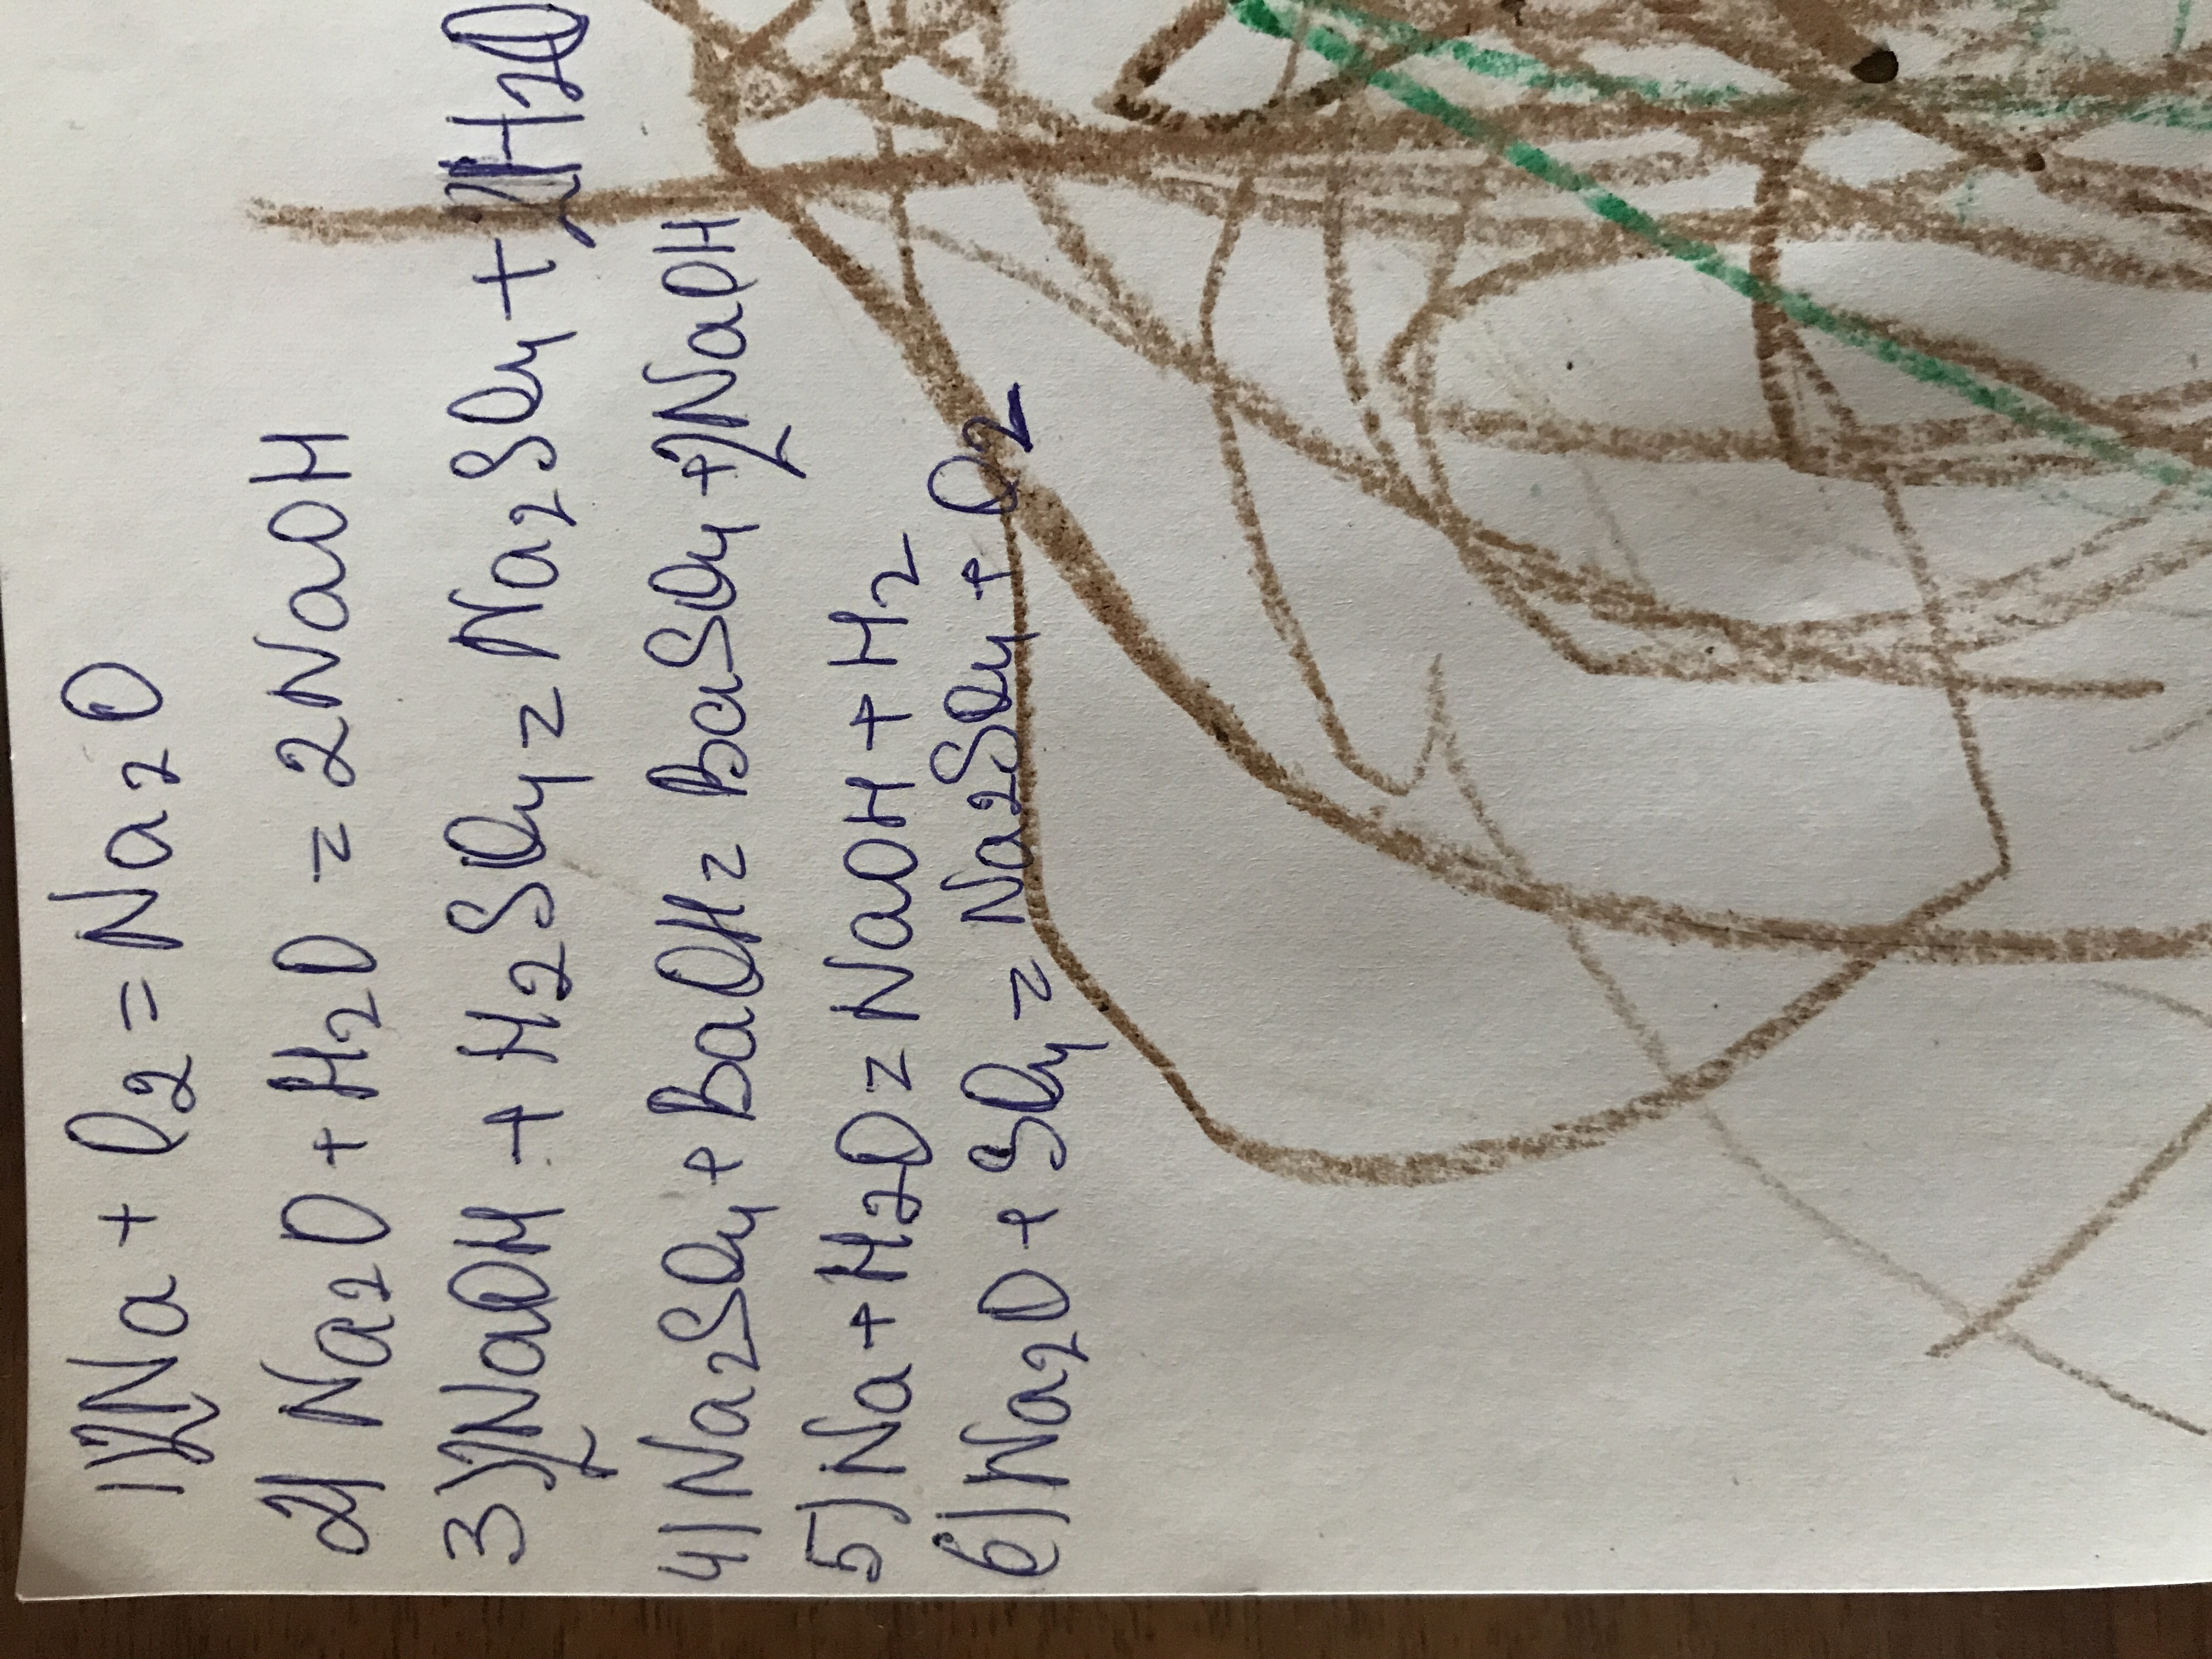 1) 2Na + O2 = Na2O
2) Na2O + H2O = 2NaOH
3) 2NaOH + H2SO4 = Na2SO4 + 2H2O
4) Na2SO4 + BaOH = BaSO4 + 2NaOH
5) Na + H2O = NaOH + H2
6) Na2O + SO4 = Na2SO4 + O2